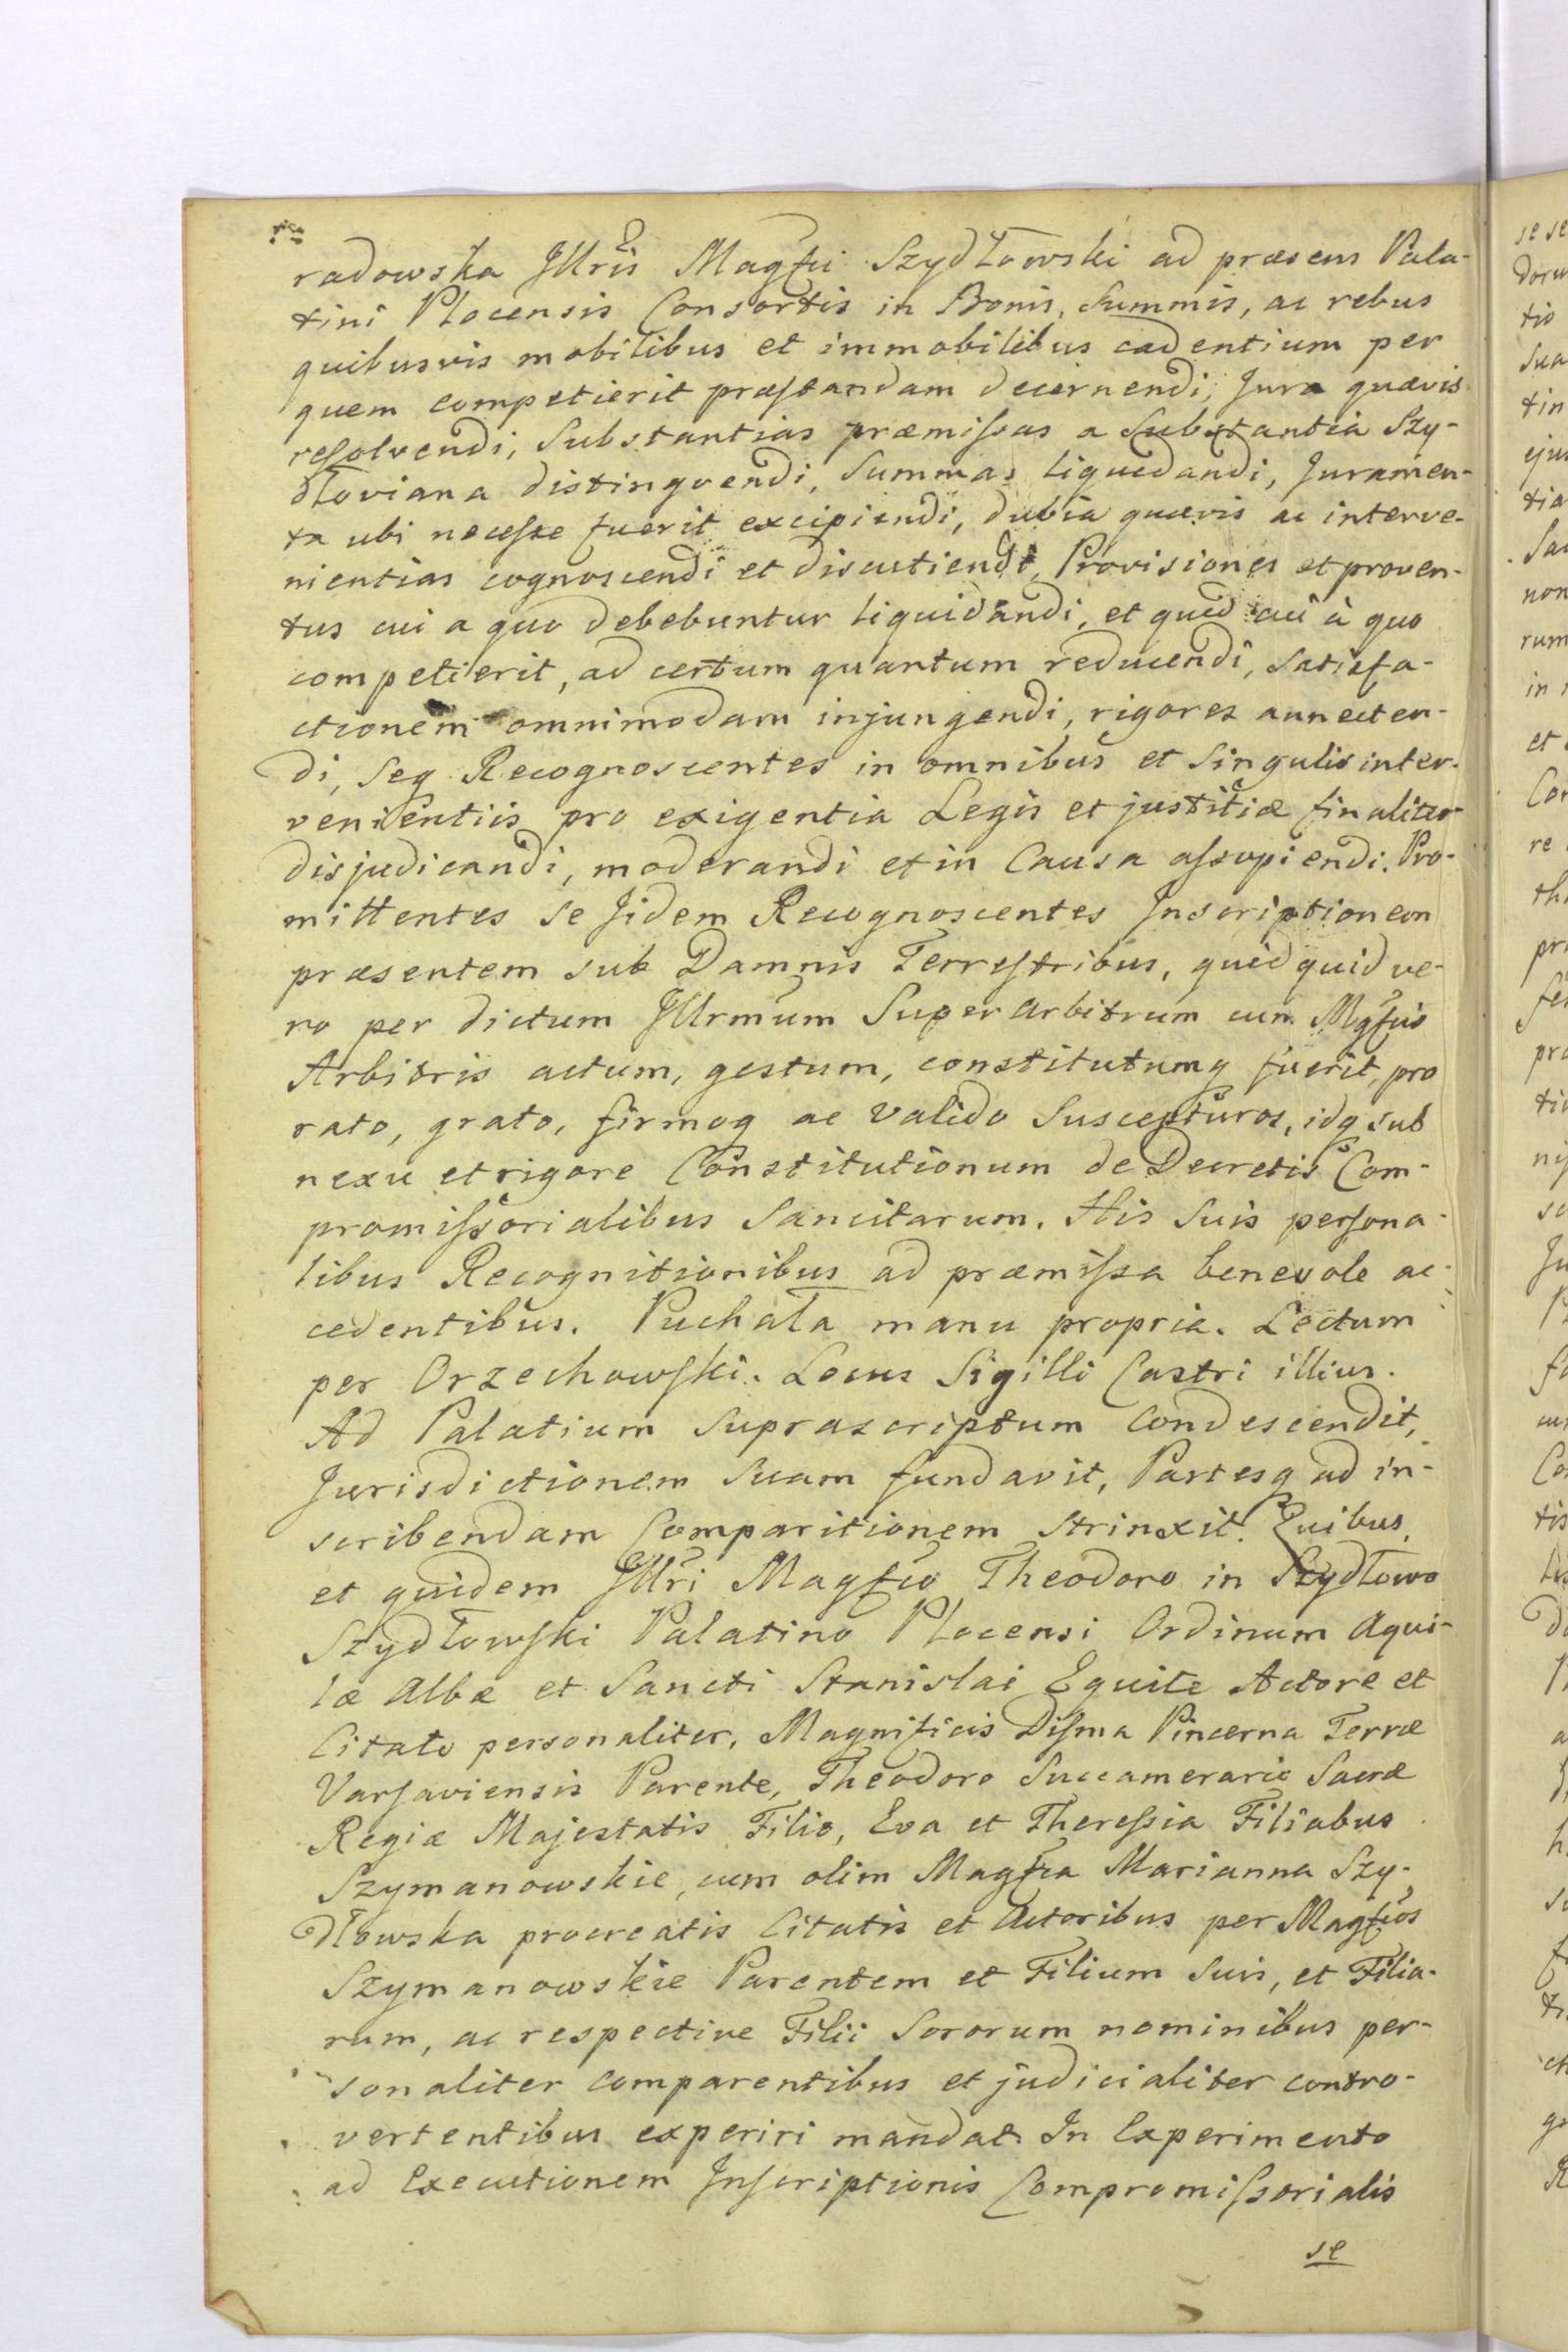 radowska Jllris Magfci Szydłowski ad præsens Pala-
tini Plocensis Consortis in Bonis, Summis, ac rebus
quibusvis mobilibus et immobilibus cadentium per
quem competierit præstandam decernendi, Jura quævis
resolvendi, Substantias præmissas a Substantia Szy-
dłoviana distinguendi, Summas liquidandi, Juramen-
ta ubi necesse fuerit excipiendi, dubia quævis ac interve-
nientias cognoscendi et discutiendi, Provisiones et proven-
tus cui a quo debebuntur liquidandi, et quid cui à quo
competierit, ad certum quantum reducendi, satisfa-
ctionem omnimodam injungendi, rigores annecten-
di, seq Recognoscentes in omnibus et singulis inter-
venientiis pro exigentia Legis et justitiæ finaliter
disjudicandi, moderandi et in Causa assopiendi. Pro-
mittentes se Jidem Recognoscentes Jnscriptionem
præsentem sub Damnis Terrestribus, quidquid ve-
ro per dictum Jllrmum Superarbitrum cum Mgfcis
Arbitris actum, gestum, constitutumq fuerit, pro
rato, grato, firmoq ac valido Suscepturos, idq sub
nexu et rigore Constitutionum de Decretis Com-
promissorialibus Sancitarum. His Suis persona-
libus Recognitionibus ad præmissa benevole ac-
cedentibus. Puchała manu propria. Lectum
per Orzechowski. Locus Sigilli Castri illius.
Ad Palatium Suprascriptum Condescendit,
Jurisdictionem Suam fundavit, Partesq ad in-
scribendam Comparitionem strinxit. Quibus,
et quidem Jllri Magfco Theodoro in Szydłowo
Szydłowski Palatino Plocensi Ordinum Aqui-
læ Albæ et Sancti Stanislai Equite Actore et
Citato personaliter, Magnificis Disma Pincerna Terræ
Varsaviensis Parente, Theodoro Succamerario Sacræ
Regiæ Majestatis Filio, Eva et Theressia Filiabus
Szymanowskie, cum olim Magfca Marianna Szy-
dłowska procreatis Citatis et Actoribus per Magfcos
Szymanowskie Parentem et Filium Suis, et Filia-
rum, ac respective Filii Sororum nominibus per-
sonaliter comparentibus et judicialiter contro-
vertentibus experiri mandat. In Experimento
ad Executionem Jnscriptionis Compromissorialis
se